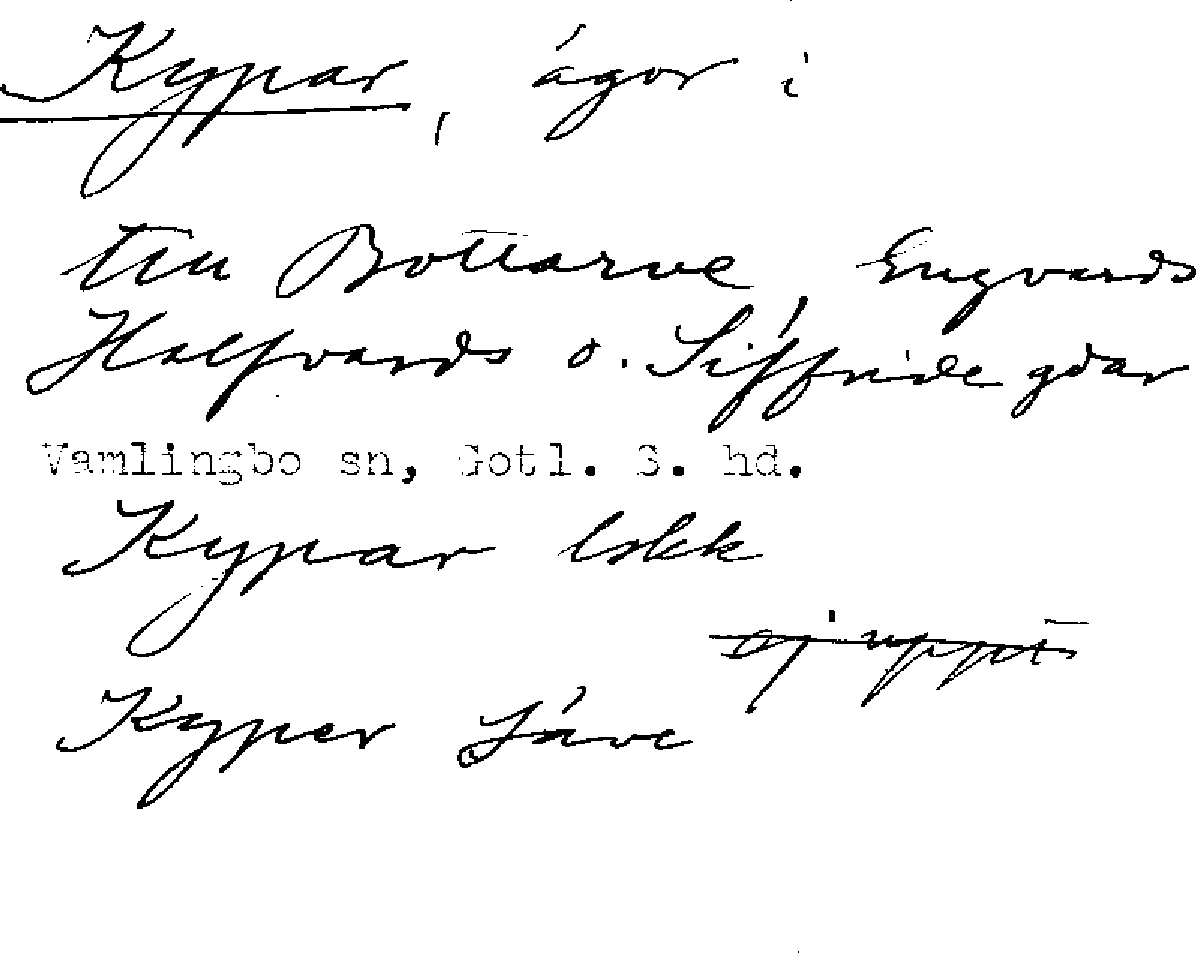 Kypar, ägor i
till Bottarve, Engvards
Halfvards o. Siffride gdar
Vamlingbo sn, Gotl. S. hd.
Kypar lskk
ej uppt
Kyper Säve